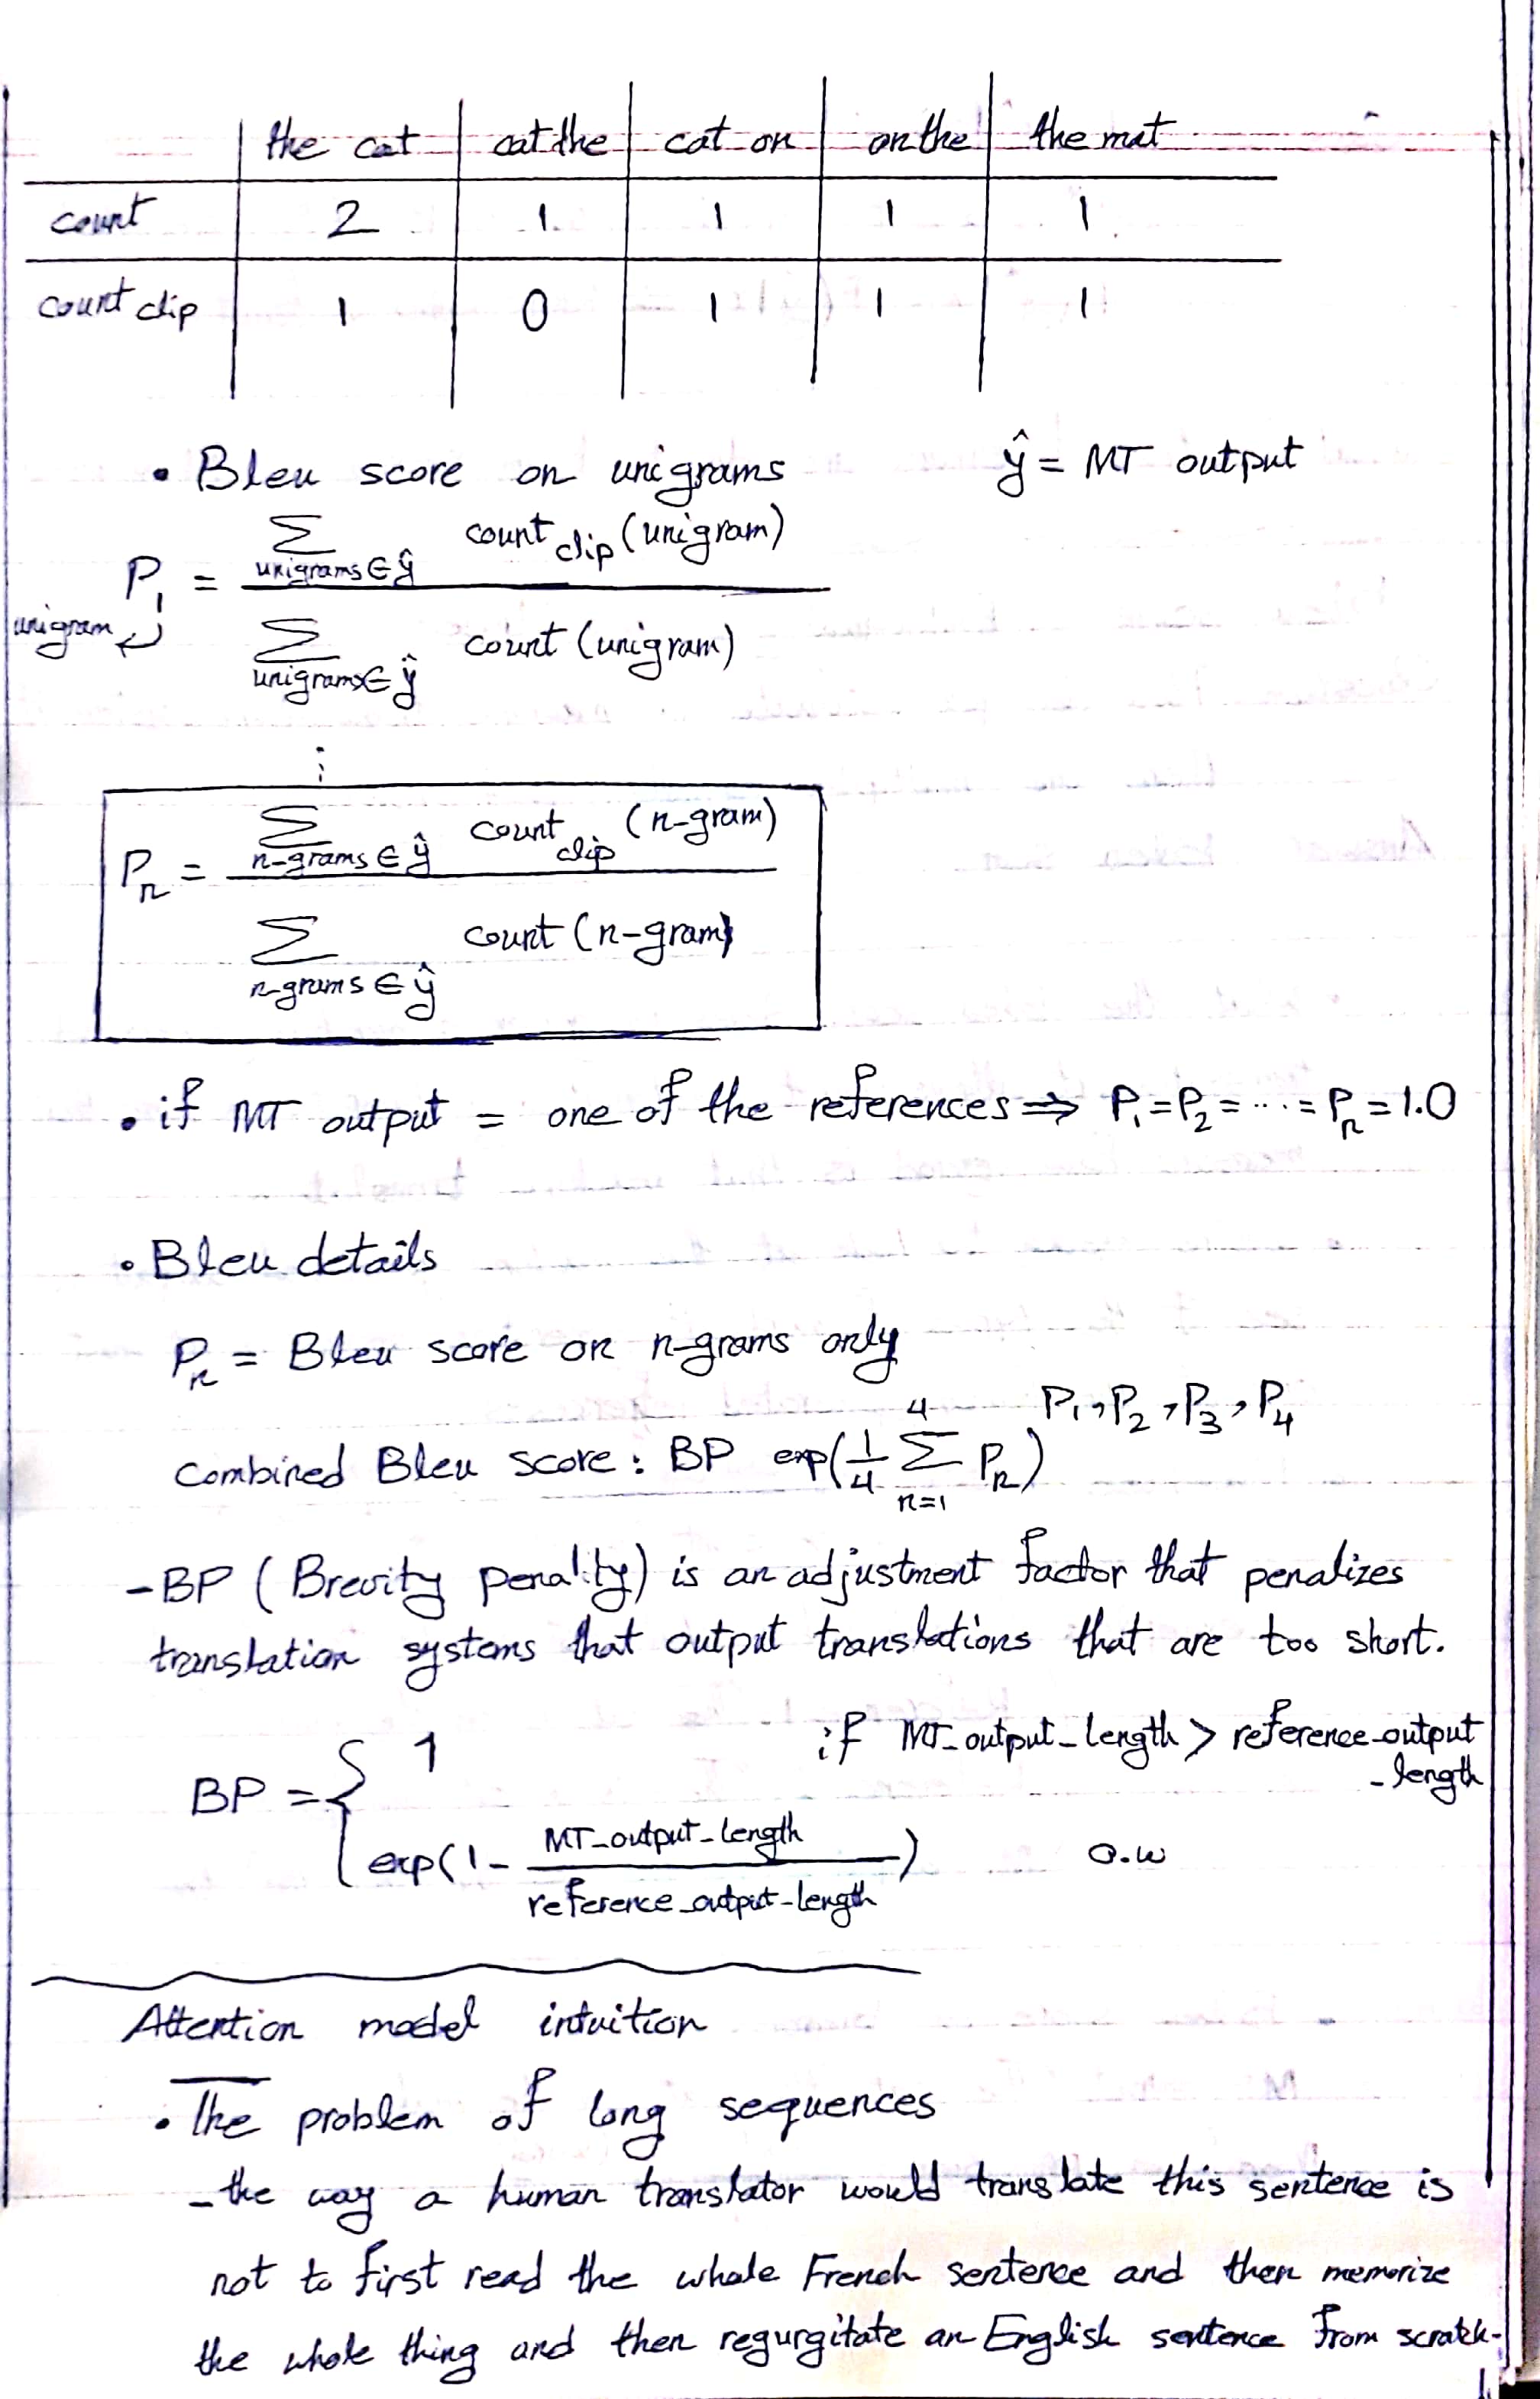 the cat cat the cat on on the the mat
count 2 1 1 1 1
count clip 1 0 1 1 1
• Bleu score on unigrams ŷ = MT output
P₁ = ∑ unigrams ∈ ŷ count clip (unigram)
unigram
∑ unigrams ∈ ŷ count (unigram)
⋮
Pn = ∑ n-grams ∈ ŷ count clip (n-gram)
∑ n-grams ∈ ŷ count (n-gram)
• if MT output = one of the references ⇒ P₁ = P₂ = ... = Pn = 1.0
• Bleu details
Pn = Bleu score on n-grams only
P₁, P₂, P₃, P₄
Combined Bleu score : BP exp(1/4 ∑ n=1 4 Pn)
- BP (Brevity penalty) is an adjustment factor that penalizes
translation systems that output translations that are too short.
BP = { 1 if MT_output_length > reference_output
_length
exp(1 - MT_output_length / reference_output_length) o.w
Attention model intuition
• The problem of long sequences
- the way a human translator would translate this sentence is
not to first read the whole French sentence and then memorize
the whole thing and then regurgitate an English sentence from scratch.